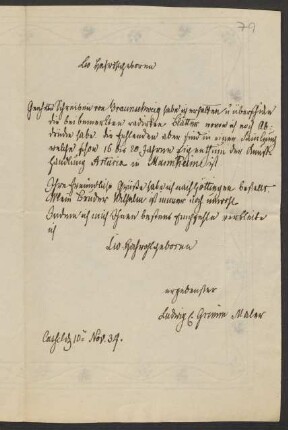 79
Ew Hochwohlgeboren
Geehrtes Schreiben von Braunschweig habe ich erhalten u. überschicke
die bei bemerkten radirten Blätter wovon ich noch Ab-
drücke habe die fehlenden aber sind in einer Samlung
welche schon 16 bis 20 Jahren Eigenthum der Kunst
handlung Artaria in Mannheim ist
Ihre freundliche Grüsse habe ich nach Göttingen bestellt
Mein Bruder Wilhelm ist immer noch unwohl
Indem ich mich Ihnen bestens Empfehle verbleibe
ich
Ew. Hochwohlgeboren
ergebenster
Ludwig E Grimm Maler
Cassel d 10t Nov. 34.